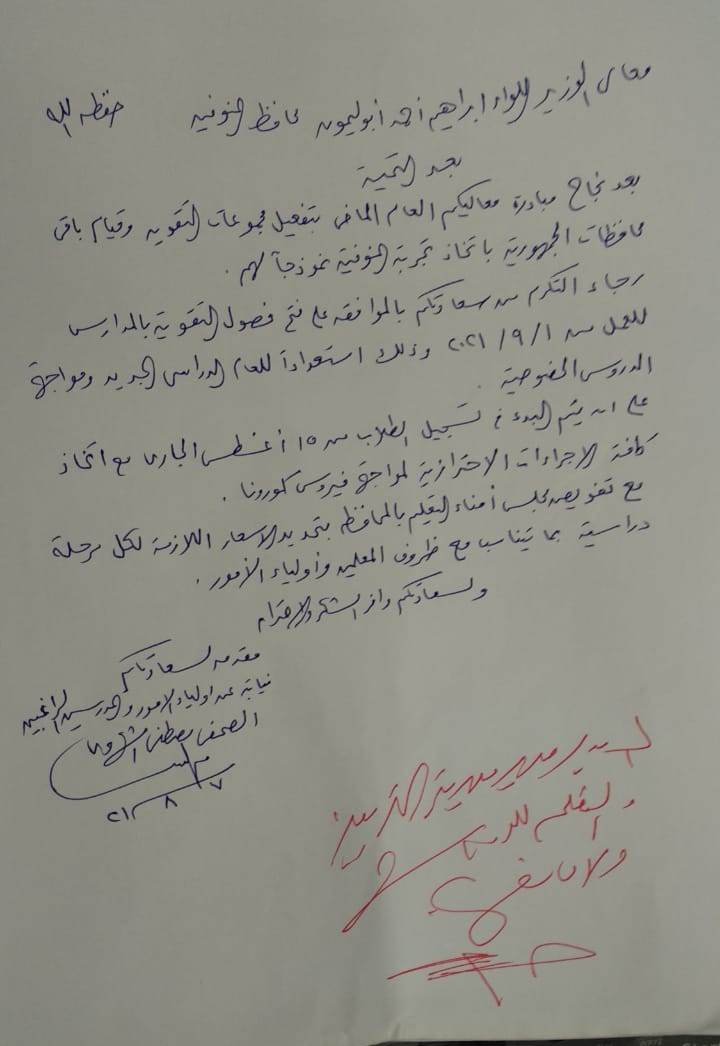 معالى الوزير اللواء ابراهيم أحمد أبوليمون محافظ المنوفية حفظه الله
بعد التحية
بعد نجاح مبادرة معاليكم العام الماضى بتفعيل مجموعات التقوية وقيام باقى
محافظات الجمهورية باتخاذ تجربة المنوفية نموذجاً لهم .
رجاء التكرم من سعادتكم بالموافقة على فتح فصول التقوية بالمدارس
للعمل من ٢٠٢١/٩/١ وذلك استعداداً للعام الدراسى الجديد ومواجهة
الدروس الخصوصية .
على ان يتم البدء فى تسجيل الطلاب من ١٥ أغسطس الجارى مع اتخاذ
كافة الاجراءات الاحترازية لمواجهة فيروس كورونا .
مع تفويض مجلس أمناء التعليم بالمحافظة بتحديد الاسعار اللازمة لكل مرحلة
دراسية بما يتناسب مع ظروف المعلمين وأولياء الأمور .
ولسعادتكم وافر الشكر والاحترام
مقدمه لسعادتكم
نيابة عن اولياء الامور والمدرسين الراغبين
الصحفى مصطفى
٢١/٨/٧
السيد مدير مديرية التربية
والتعليم
ولا مانع